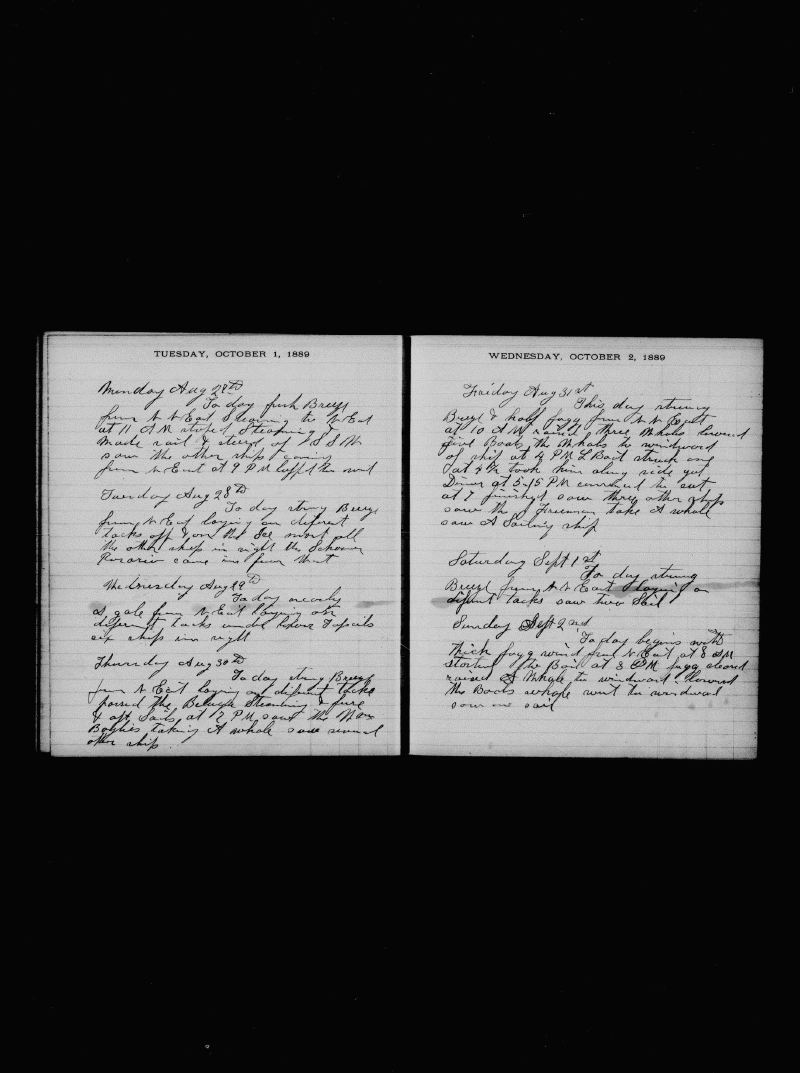 TUESDAY, OCTOBER 1, 1889
Munday Aug 28th
To day fresh Breeze
from N N East Steaming to N East
at 11 A M stoped Steaming
made sail & steerd of S S W
saw the other ships
from N East at 9 P M luffd the
Tuesday Aug 28th
To day strong Breeze
from N East laying on diferent
tacks off & on the Ice most all
the other ships in sight the Schooner
Rosario came in from
Wednesday Aug 29th
To day nearly
A gale from N East laying on
different tacks under Topsails
six ships in sight
Thursday Aug 30th
To day strong Breeze
from N East laying on difrent tacks
passed the Beluga Steaming & fore
& aft Sails at 2 P M saw the Mars
taking A whale saw several
other ships
WEDNESDAY, OCTOBER 2, 1889
Friday Aug 31st
This day strong
Breeze & half fogg from N N East
at 10 A M raised three Whales lowerd
five Boats the Whals to windward
of ship at 4 P M L Boat struck one
at took him along side got
Dinner at 5-15 P M comenced to cut
at 7 finished saw three other ships
saw the Freeman take A whale
saw A Sailing ship
Saturday Sept 1st
To day strong
Breeze from N N East laying on
difrent tacks saw two Sail
Sunday Sept 2nd
To day begins with
thick fogg wind from N East at 8 A M
Started the Boil at 3 P M fogg cleard
raised A Whale to windward lowerd
the Boats whale went to windwad
saw one sail